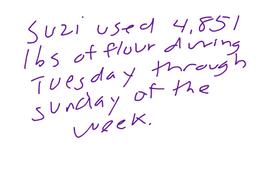 Suzi used 4,851
lbs of flour during
Tuesday through
sunday of the
week.